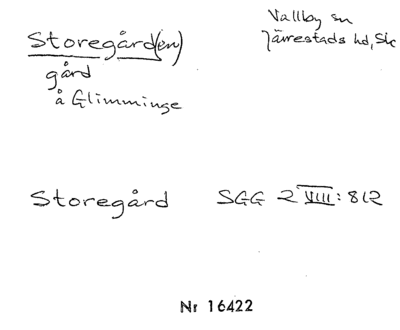 Storegård(en)
gård
å Glimminge
Vallby sn
Järrestads hd, Sk
Storegård SGG 2 VIII: 812
Nr 16422